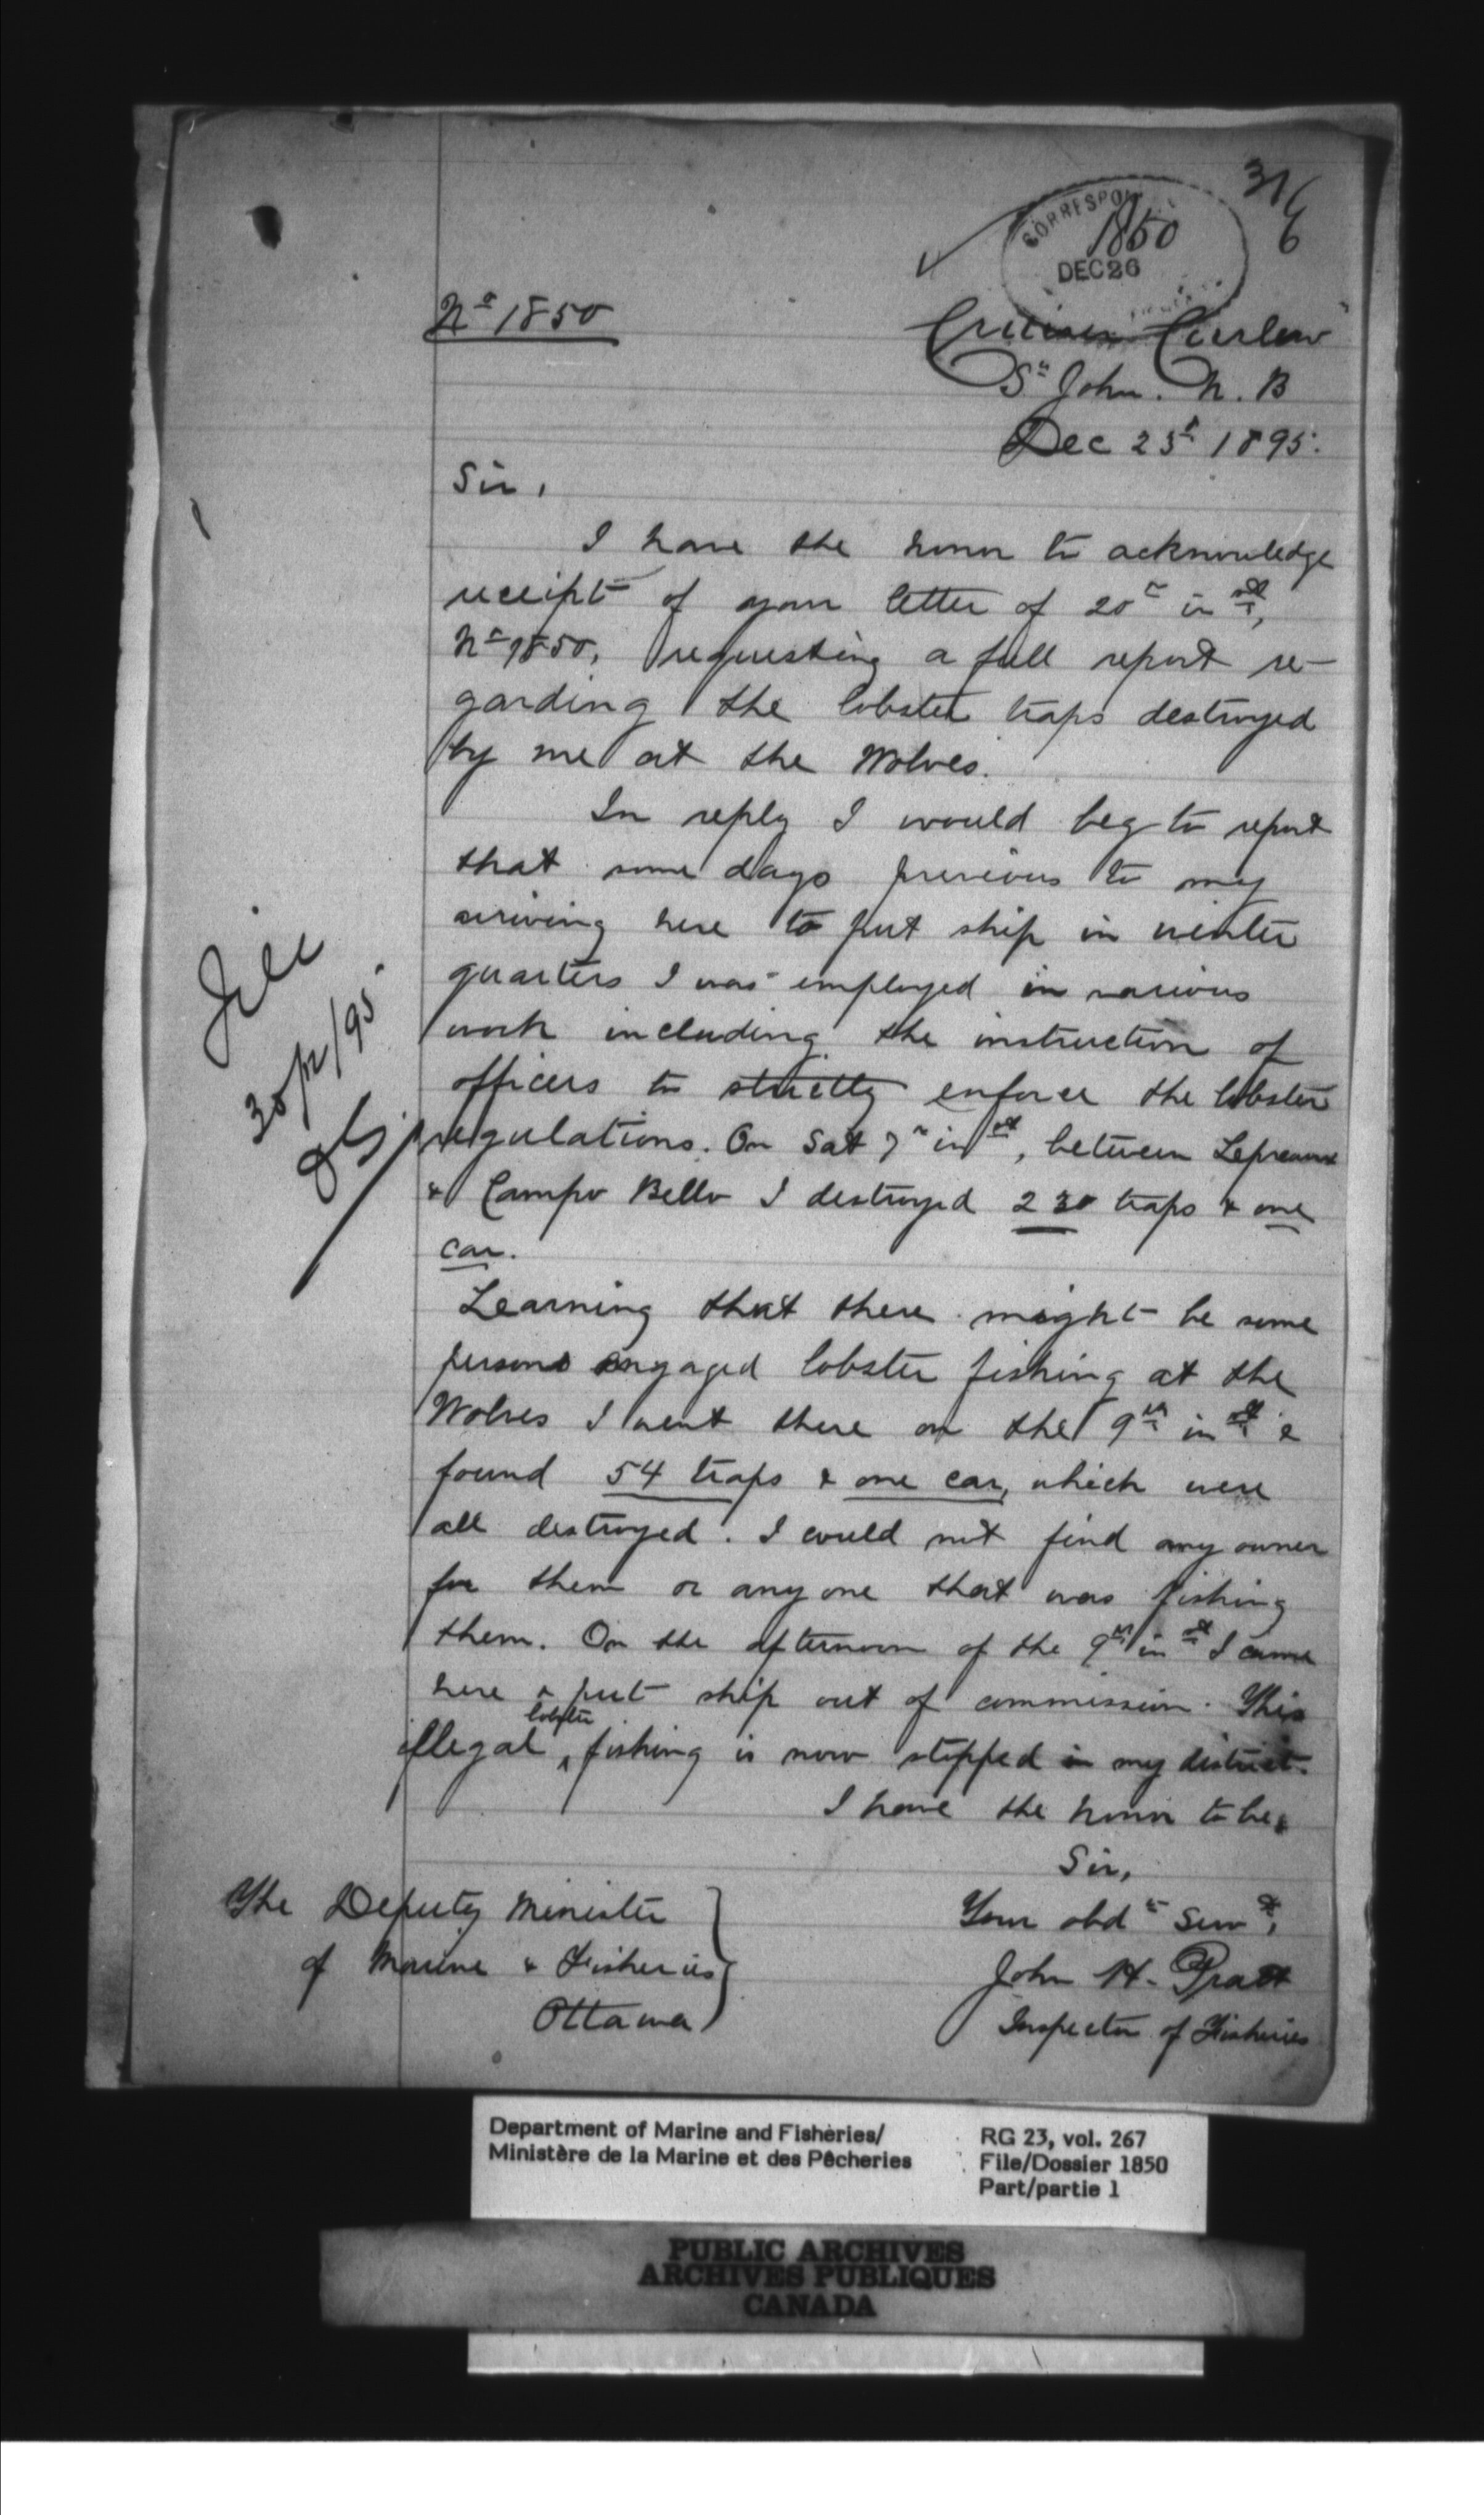 31/6
CORRESPON
1850
DEC 26
No 1850
Cruiser Curlew
St John. N. B
Dec 23rd 1895.
Sir,
I have the honor to acknowledge
receipt of your letter of 20th inst,
No 1850, requesting a full report re-
garding the lobster traps destroyed
by me at the Wolves.
In reply I would beg to report
that some days previous to my
arriving here to put ship in winter
quarters I was employed in various
work including the instruction of
officers to strictly enforce the lobster
regulations. On Sat 7th inst, between Lepreaux
& Campo Bello I destroyed 230 traps & one
car.
Learning that there might be some
persons engaged lobster fishing at the
Wolves I went there on the 9th inst &
found 54 traps & one car, which were
all destroyed. I could not find any owner
for them or any one that was fishing
them. On the afternoon of the 9th inst I came
here & put ship out of commission. This
illegal lobster fishing is now stopped in my district.
I have the honor to be,
Sir,
Your obdt Servt,
John H. Pratt
Inspector of Fisheries
The Deputy Minister
of Marine & Fisheries
Ottawa
File
30/12/95
Department of Marine and Fisheries/
Ministère de la Marine et des Pêcheries
RG 23, vol. 267
File/Dossier 1850
Part/partie 1
PUBLIC ARCHIVES
ARCHIVES PUBLIQUES
CANADA